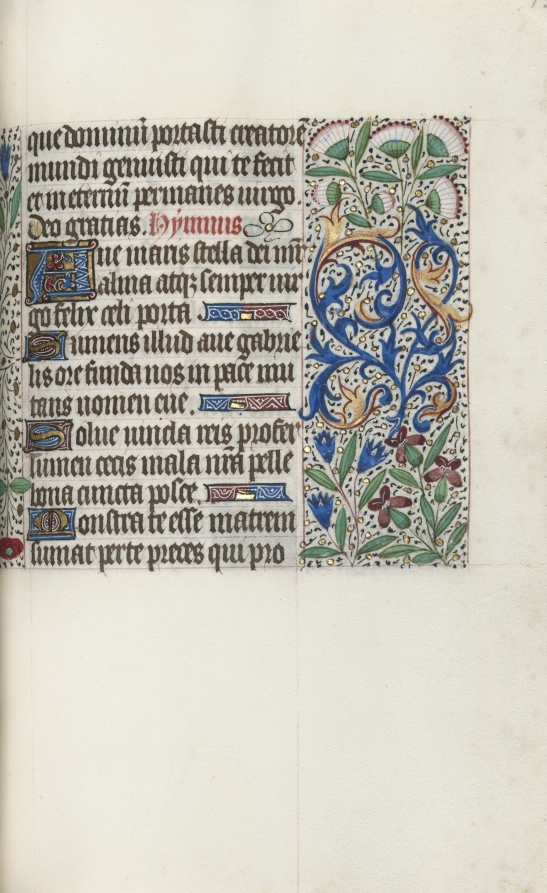 que dominũ portasti creatorẽ
mundi genuisti qui te fecit
et in eternũ permanes uirgo.
Deo gratias. Hymnus
Aue maris stella dei mr̃
alma atqꝫ semper uir
go felix celi porta.
Sumens illud aue gabrie
lis ore funda nos in pace mu
tans nomen eue.
Solue uincla reis profer
lumen cecis mala nr̃a pelle
bona cuncta posce.
Monstra te esse matrem
sumat per te preces qui pro